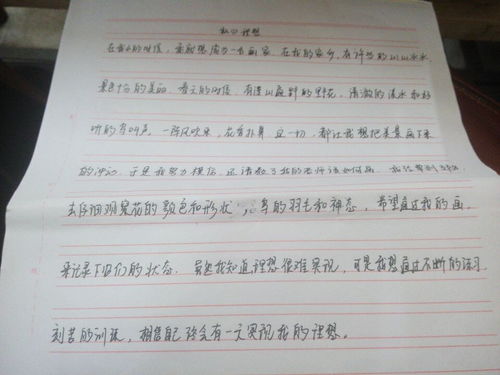 我的理想
在我小的时候，我就想成为一名画家。在我的家乡，有许多的山山水水，
景色十分的美丽。春天的时候，有漫山遍野的野花，清澈的溪水和好
听的鸟叫声。一阵风吹来，花香扑鼻。这一切，都让我想把美景画下来
的冲动。于是我努力模仿，还请教了我的老师该如何画。我经常到野外
去仔细观察花的颜色和形状，鸟的羽毛和神态，希望通过我的画，
来记录下它们的状态。虽然我知道理想很难实现，可是我想通过不断的练习，
刻苦的训练，相信自己终会有一天实现我的理想。